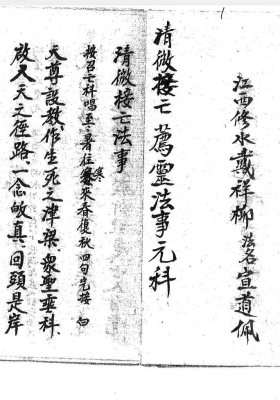 江西修水戴祥柳法名宣道佩
清微接亡薦靈法事元科
清微接亡法事
接召亡科唱至寒往暑來春復秋四句先接 白
天尊設教作生死之津梁眾聖垂科
啟人天之徑路一念皈真回頭是岸